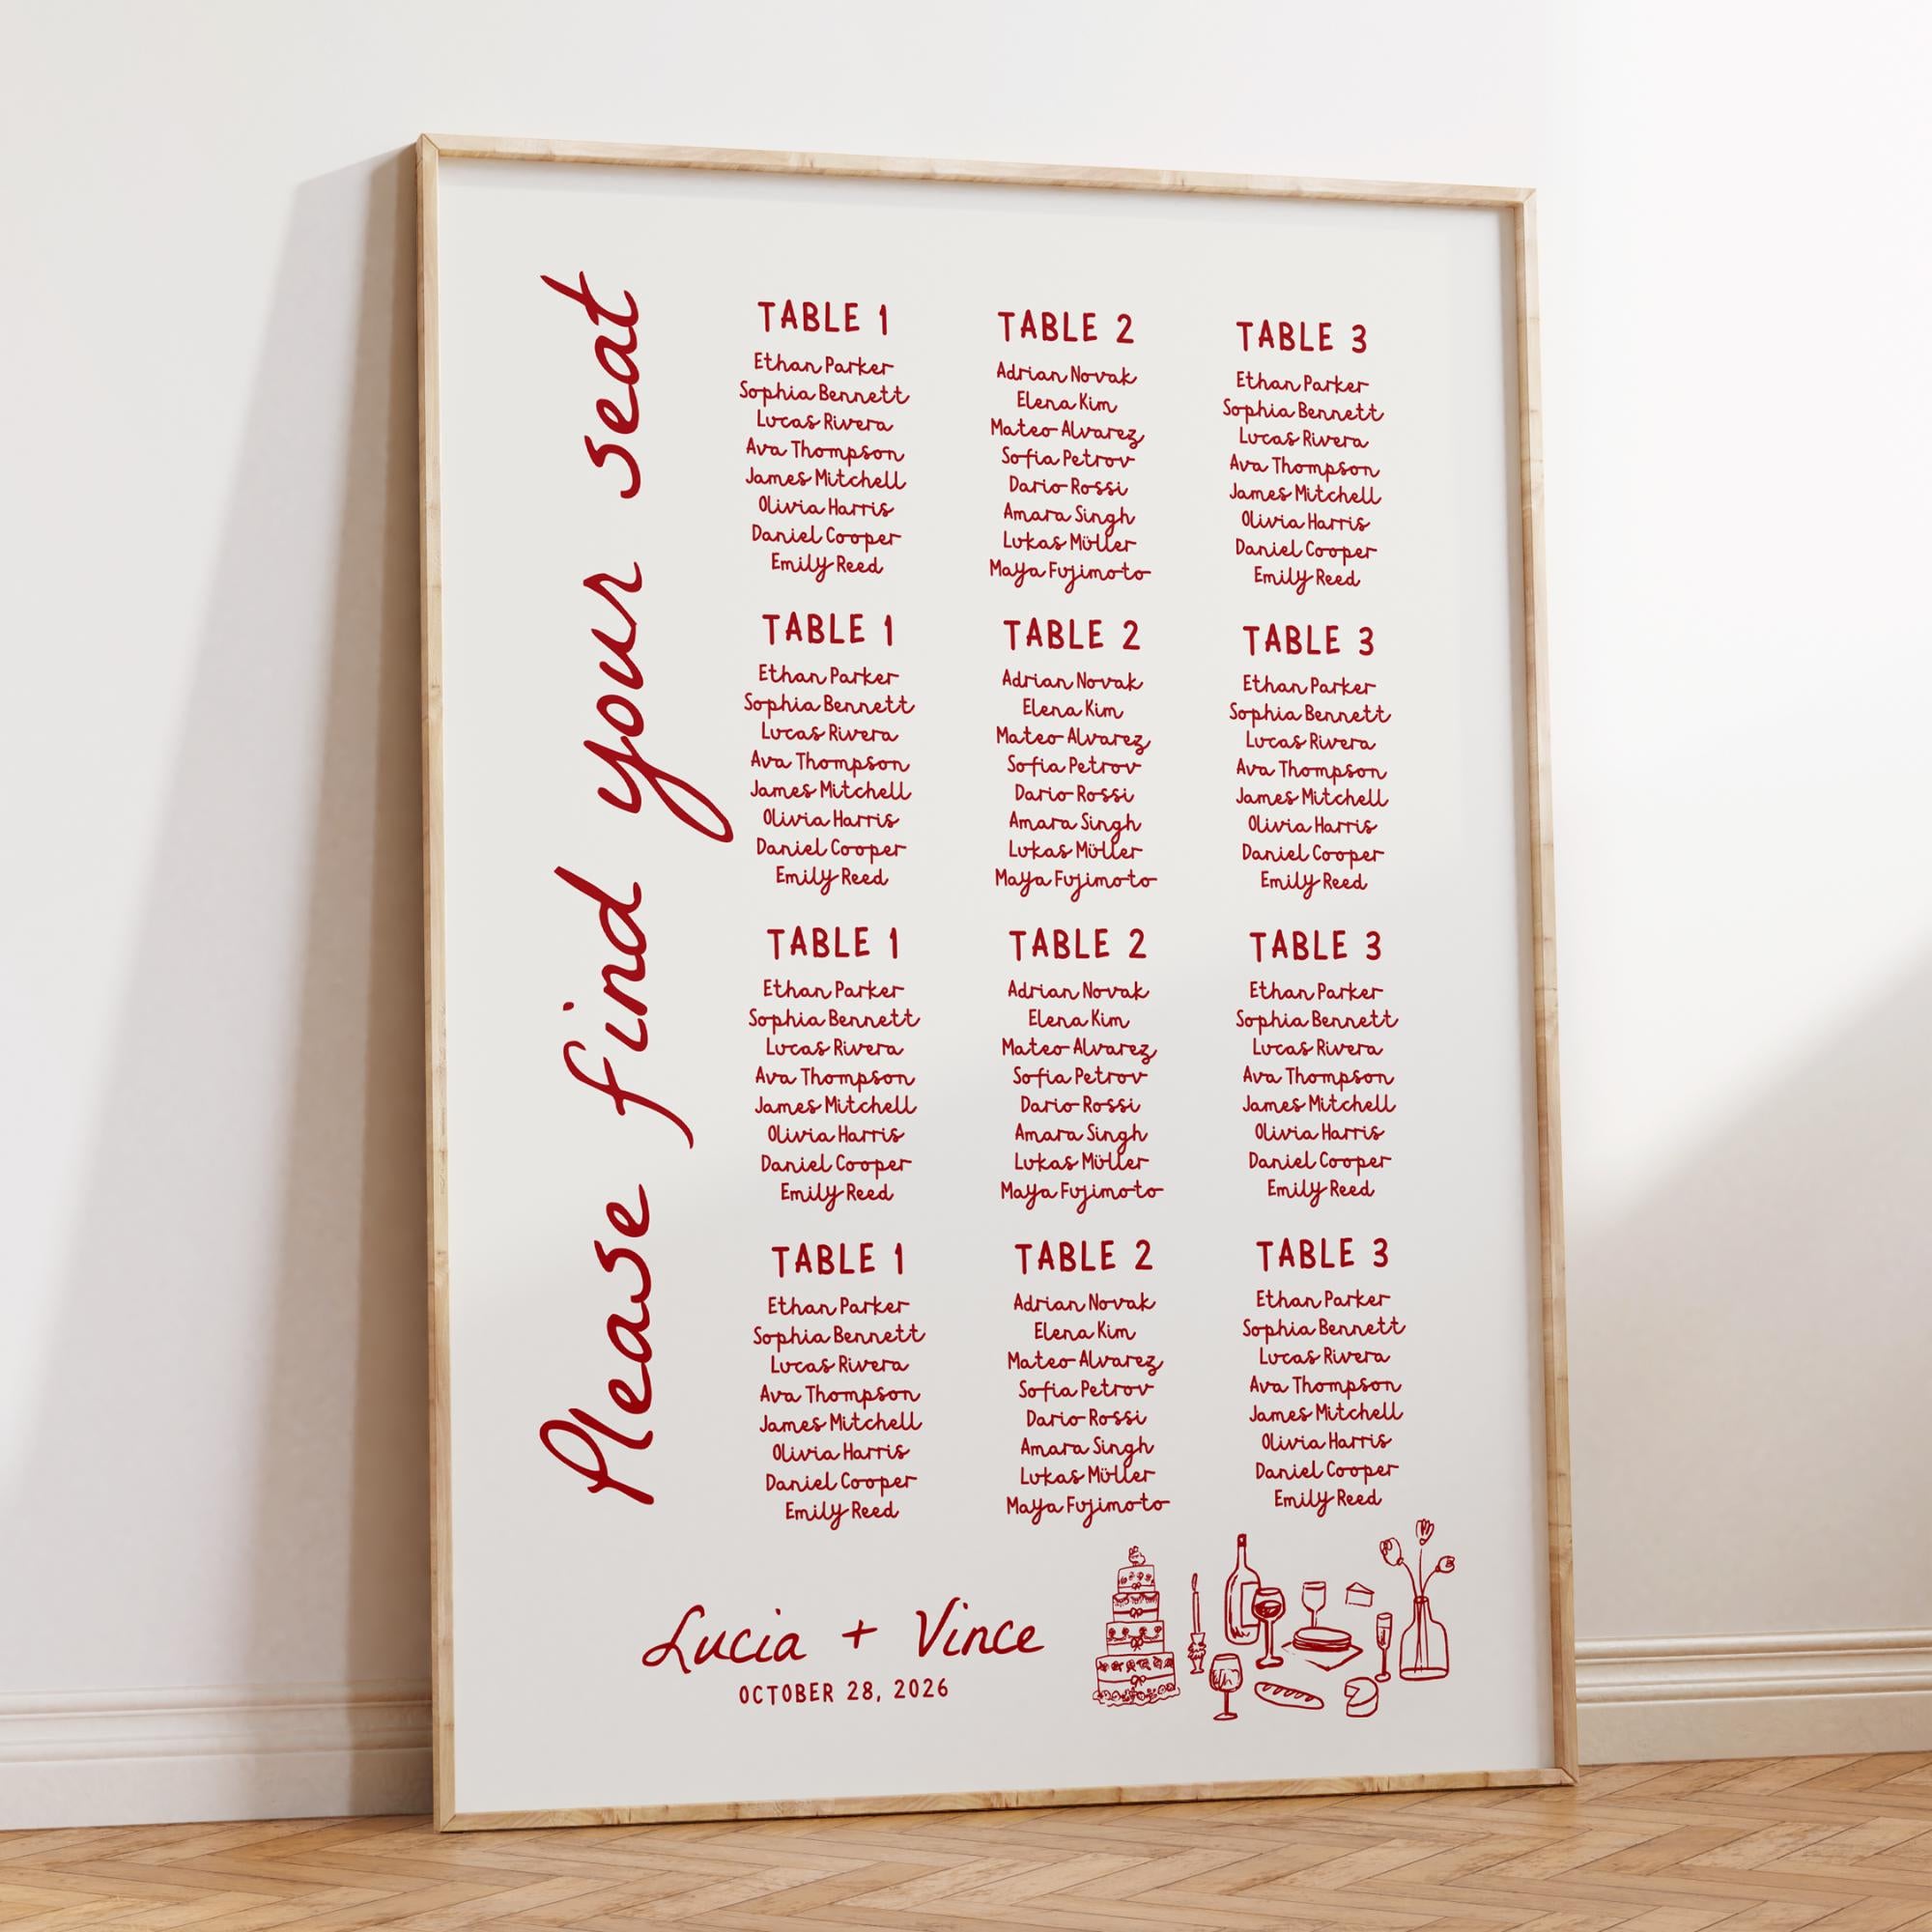 Please find your seat
TABLE 1
Ethan Parker
Sophia Bennett
Lucas Rivera
Ava Thompson
James Mitchell
Olivia Harris
Daniel Cooper
Emily Reed
TABLE 2
Adrian Novak
Elena Kim
Mateo Alvarez
Sofia Petrov
Dario Rossi
Amara Singh
Lukas Müller
Maya Fujimoto
TABLE 3
Ethan Parker
Sophia Bennett
Lucas Rivera
Ava Thompson
James Mitchell
Olivia Harris
Daniel Cooper
Emily Reed
TABLE 1
Ethan Parker
Sophia Bennett
Lucas Rivera
Ava Thompson
James Mitchell
Olivia Harris
Daniel Cooper
Emily Reed
TABLE 2
Adrian Novak
Elena Kim
Mateo Alvarez
Sofia Petrov
Dario Rossi
Amara Singh
Lukas Müller
Maya Fujimoto
TABLE 3
Ethan Parker
Sophia Bennett
Lucas Rivera
Ava Thompson
James Mitchell
Olivia Harris
Daniel Cooper
Emily Reed
TABLE 1
Ethan Parker
Sophia Bennett
Lucas Rivera
Ava Thompson
James Mitchell
Olivia Harris
Daniel Cooper
Emily Reed
TABLE 2
Adrian Novak
Elena Kim
Mateo Alvarez
Sofia Petrov
Dario Rossi
Amara Singh
Lukas Müller
Maya Fujimoto
TABLE 3
Ethan Parker
Sophia Bennett
Lucas Rivera
Ava Thompson
James Mitchell
Olivia Harris
Daniel Cooper
Emily Reed
TABLE 1
Ethan Parker
Sophia Bennett
Lucas Rivera
Ava Thompson
James Mitchell
Olivia Harris
Daniel Cooper
Emily Reed
TABLE 2
Adrian Novak
Elena Kim
Mateo Alvarez
Sofia Petrov
Dario Rossi
Amara Singh
Lukas Müller
Maya Fujimoto
TABLE 3
Ethan Parker
Sophia Bennett
Lucas Rivera
Ava Thompson
James Mitchell
Olivia Harris
Daniel Cooper
Emily Reed
Lucia + Vince
OCTOBER 28, 2026